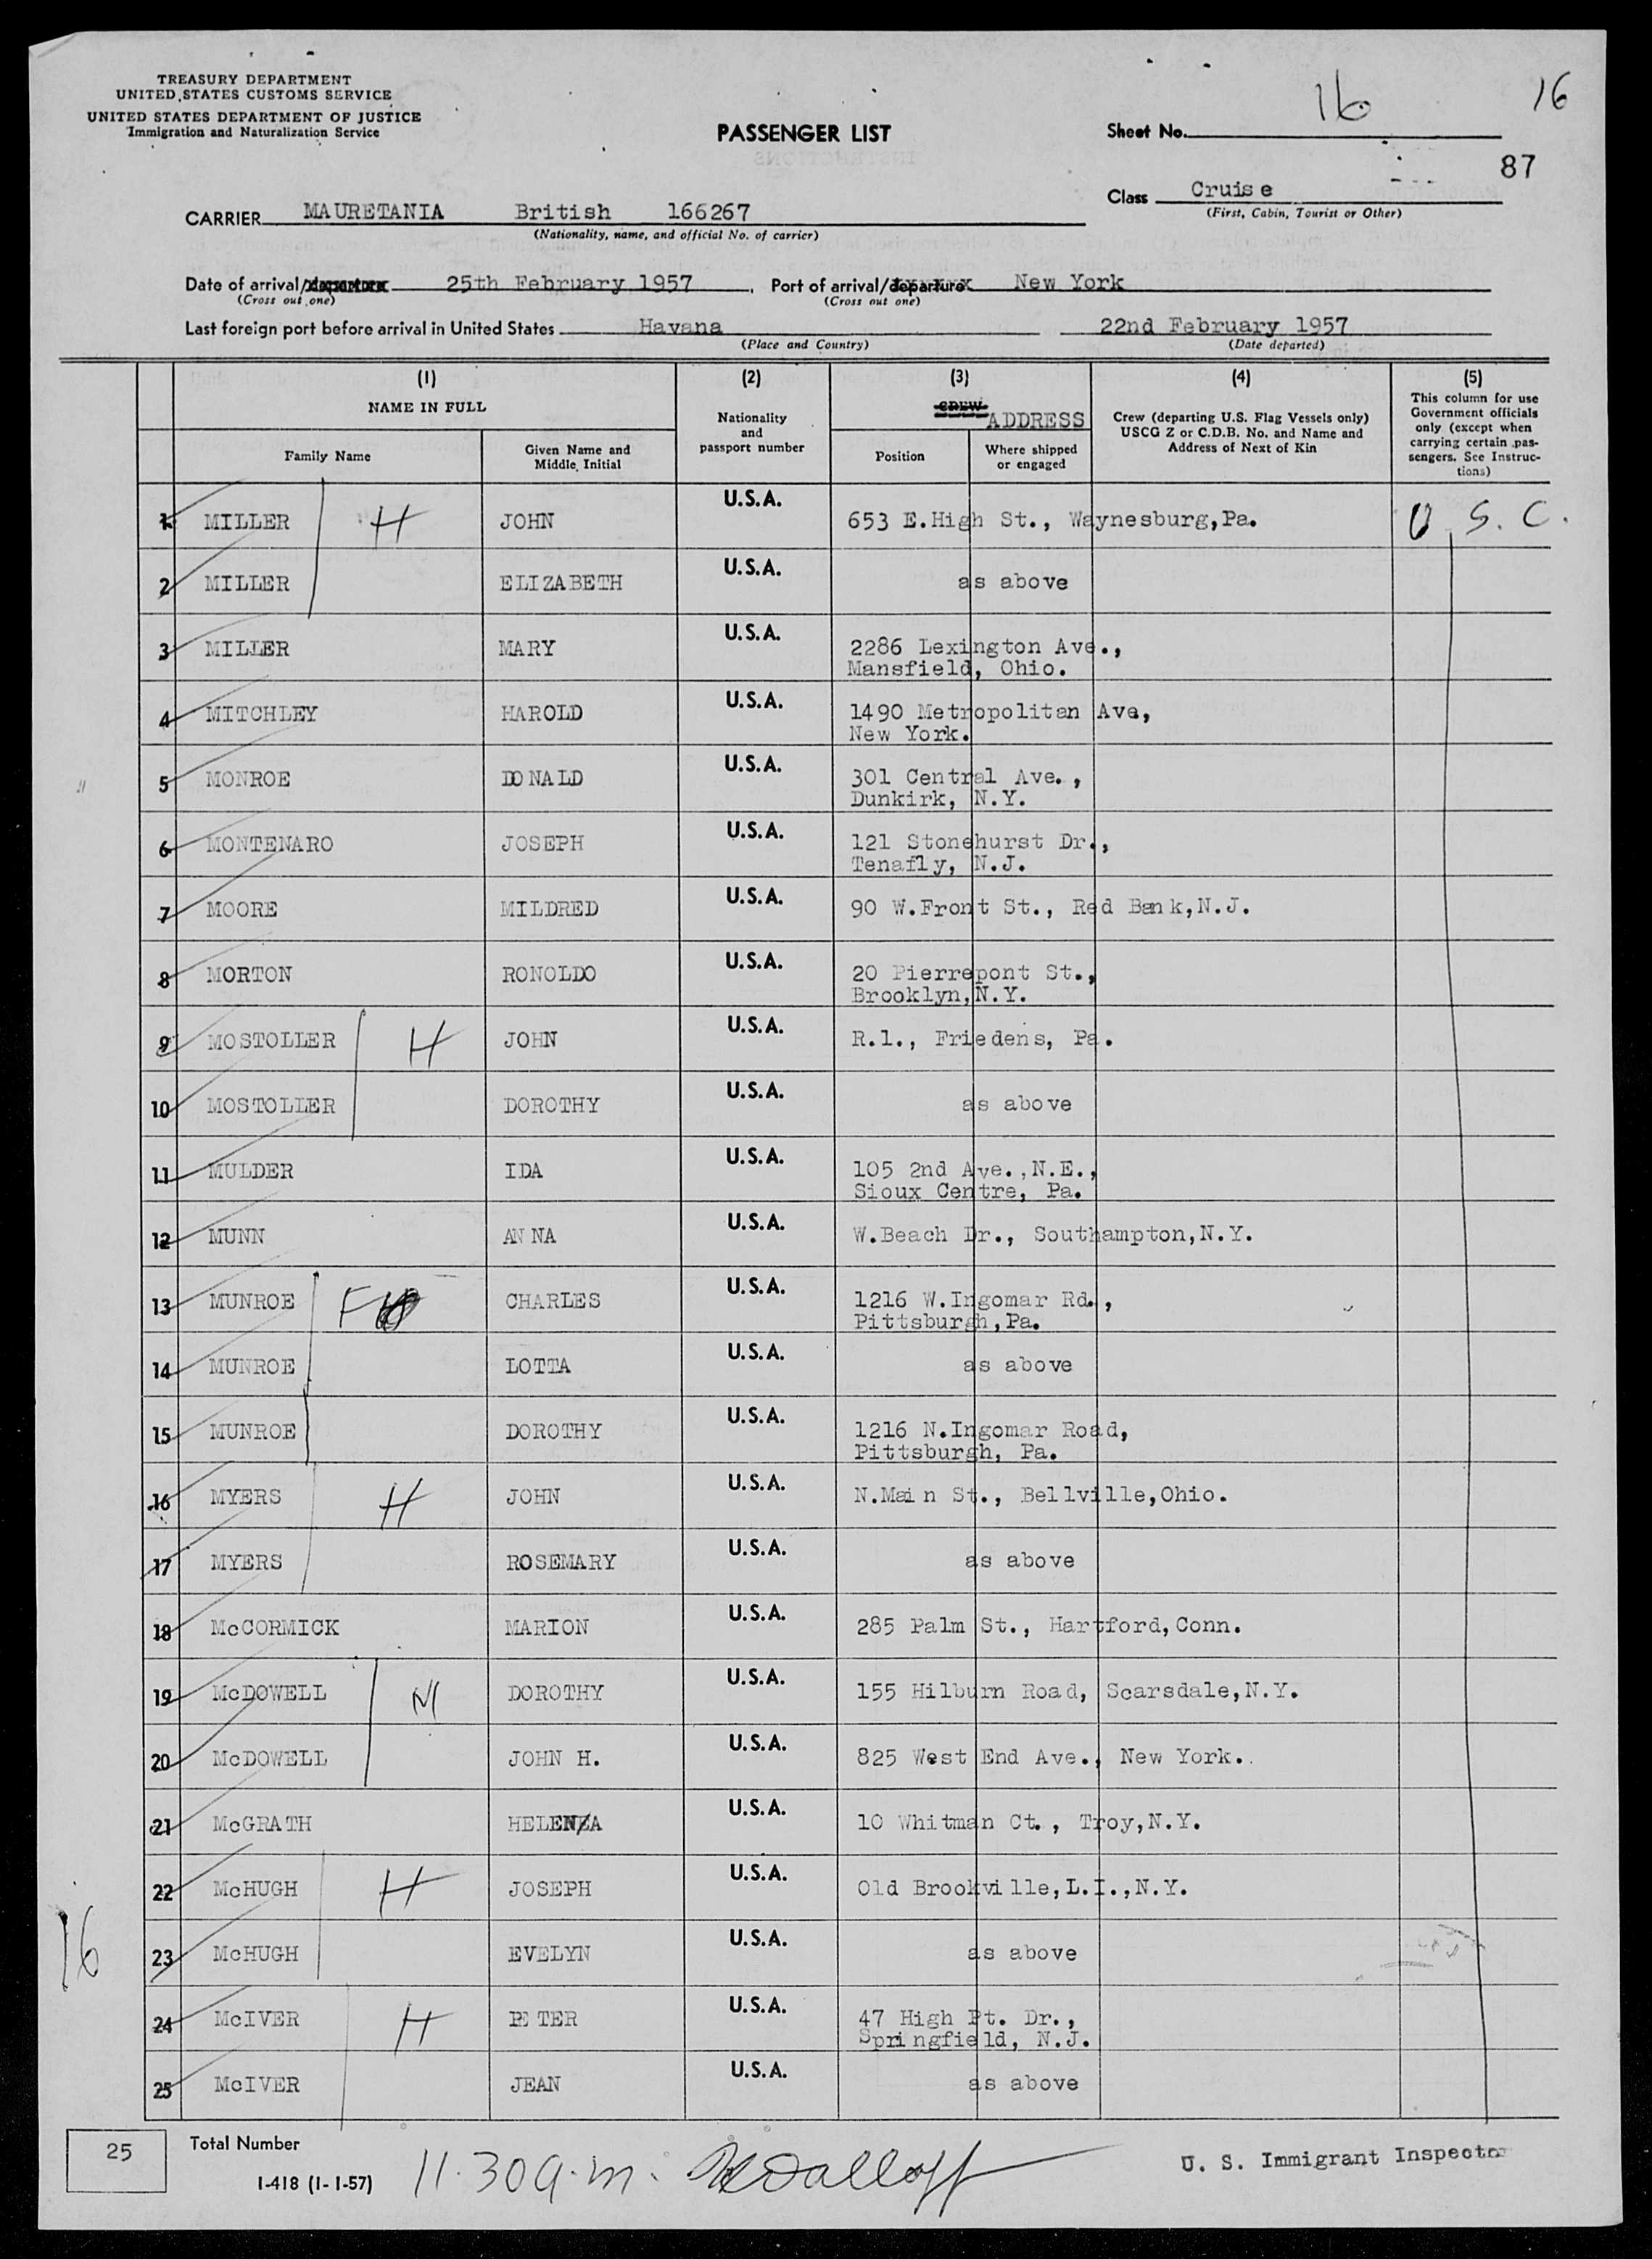 TREASURY DEPARTMENT
UNITED STATES CUSTOMS SERVICE
UNITED STATES DEPARTMENT OF JUSTICE
Immigration and Naturalization Service
PASSENGER LIST
Sheet No. 16
16
87
Class Cruise
(First, Cabin, Tourist or Other)
CARRIER MAURETANIA British 166267
(Nationality, name, and official No. of carrier)
Date of arrival/departure 25th February 1957, Port of arrival/departure New York
(Cross out one) (Cross out one)
Last foreign port before arrival in United States Havana 22nd February 1957
(Place and Country) (Date departed)
(1) (2) (3) (4) (5)
NAME IN FULL
Family Name
Given Name and
Middle Initial
Nationality
and
passport number
CREW ADDRESS
Position
Where shipped
or engaged
Crew (departing U.S. Flag Vessels only)
USCG Z or C.D.B. No. and Name and
Address of Next of Kin
This column for use
Government officials
only (except when
carrying certain pas-
sengers. See Instruc-
tions)
1 MILLER H JOHN U.S.A. 653 E.High St., Waynesburg,Pa. U.S.C.
2 MILLER ELIZABETH U.S.A. as above
3 MILLER MARY U.S.A. 2286 Lexington Ave.,
Mansfield, Ohio.
4 MITCHLEY HAROLD U.S.A. 1490 Metropolitan Ave,
New York.
5 MONROE DONALD U.S.A. 301 Central Ave.,
Dunkirk, N.Y.
6 MONTENARO JOSEPH U.S.A. 121 Stonehurst Dr.,
Tenafly, N.J.
7 MOORE MILDRED U.S.A. 90 W.Front St., Red Bank,N.J.
8 MORTON RONOLDO U.S.A. 20 Pierrepont St.,
Brooklyn,N.Y.
9 MOSTOLLER H JOHN U.S.A. R.1., Friedens, Pa.
10 MOSTOLLER DOROTHY U.S.A. as above
11 MULDER IDA U.S.A. 105 2nd Ave.,N.E.,
Sioux Centre, Pa.
12 MUNN ANNA U.S.A. W.Beach Dr., Southampton,N.Y.
13 MUNROE F CHARLES U.S.A. 1216 W.Ingomar Rd.,
Pittsburgh,Pa.
14 MUNROE LOTTA U.S.A. as above
15 MUNROE DOROTHY U.S.A. 1216 N.Ingomar Road,
Pittsburgh, Pa.
16 MYERS H JOHN U.S.A. N.Main St., Bellville,Ohio.
17 MYERS ROSEMARY U.S.A. as above
18 McCORMICK MARION U.S.A. 285 Palm St., Hartford,Conn.
19 McDOWELL M DOROTHY U.S.A. 155 Hilburn Road, Scarsdale,N.Y.
20 McDOWELL JOHN H. U.S.A. 825 West End Ave., New York.
21 McGRATH HELENA U.S.A. 10 Whitman Ct., Troy,N.Y.
22 McHUGH H JOSEPH U.S.A. Old Brookville,L.I.,N.Y.
23 McHUGH EVELYN U.S.A. as above
16
24 McIVER H PETER U.S.A. 47 High Pt. Dr.,
Springfield, N.J.
25 McIVER JEAN U.S.A. as above
25 Total Number
I-418 (1-1-57)
11.30 a.m.
U. S. Immigrant Inspector